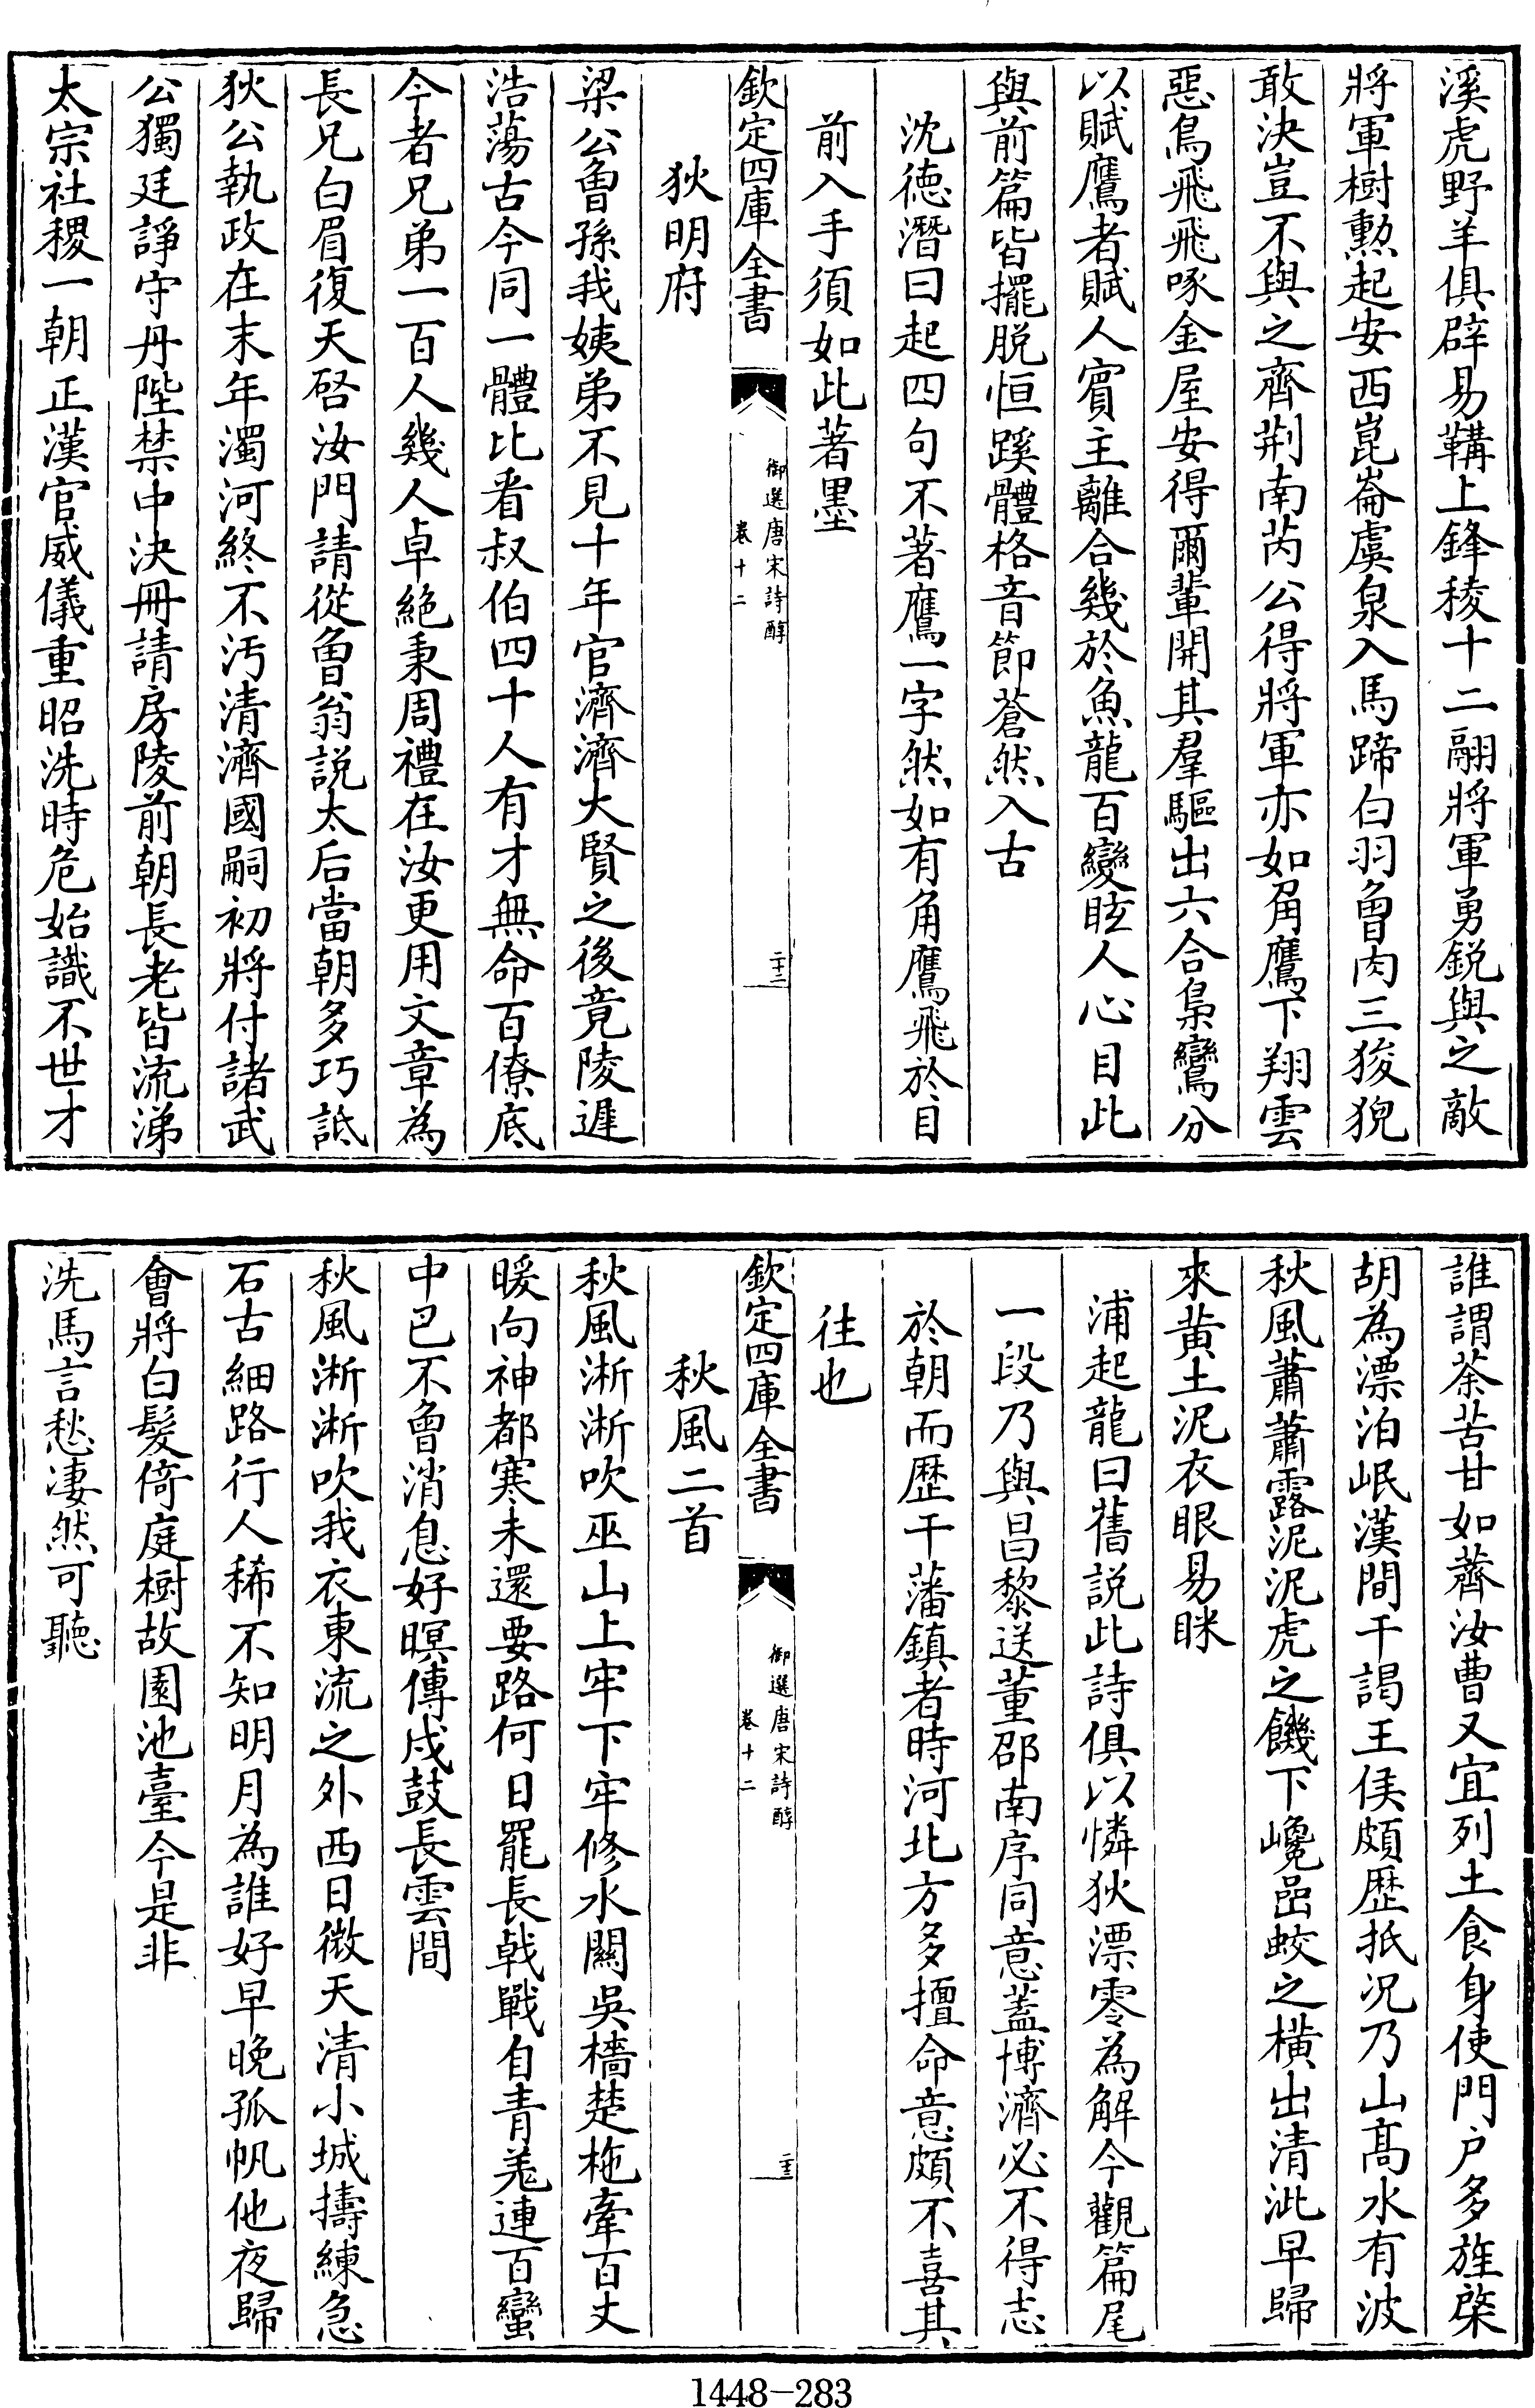 溪虎野羊俱辟易鞲上鋒稜十二翮將軍勇鋭與之敵
將軍樹勲起安西崑崙虞泉入馬蹄白羽曾肉三狻猊
敢決豈不與之齊荆南芮公得將軍亦如角鷹下翔雲
惡鳥飛飛啄金屋安得爾輩開其羣驅出六合梟鸞分
以賦鷹者賦人賓主離合幾於魚龍百變眩人心目此
與前篇皆擺脱恒蹊體格音節蒼然入古
沈德潛曰起四句不著鷹一字然如有角鷹飛於目
前入手須如此著墨
欽定四庫全書
御選唐宋詩醇
卷十二
二十二
狄明府
梁公曾孫我姨弟不見十年官濟濟大賢之後竟陵遲
浩蕩古今同一體比看叔伯四十人有才無命百僚底
今者兄弟一百人幾人卓絶秉周禮在汝更用文章為
長兄白眉復天啓汝門請從曾翁説太后當朝多巧詆
狄公執政在末年濁河終不汚清濟國嗣初將付諸武
公獨廷諍守丹陛禁中決冊請房陵前朝長老皆流涕
太宗社稷一朝正漢官威儀重昭洗時危始識不世才
誰謂荼苦甘如薺汝曹又宜列土食身使門户多旌棨
胡為漂泊岷漢間干謁王侯頗歴抵況乃山髙水有波
秋風蕭蕭露泥泥虎之饑下巉嵒蛟之横出清泚早歸
來黄土泥衣眼易眯
浦起龍曰舊説此詩俱以憐狄漂零為解今觀篇尾
一段乃與昌黎送董邵南序同意蓋博濟必不得志
於朝而歴干藩鎮者時河北方多擅命意頗不喜其
往也
欽定四庫全書
御選唐宋詩醇
卷十二
二十三
秋風二首
秋風淅淅吹巫山上牢下牢修水關吳檣楚柂牽百丈
暖向神都寒未還要路何日罷長戟戰自青羗連百蠻
中巴不曾消息好暝傳戍鼓長雲間
秋風淅淅吹我衣東流之外西日微天清小城擣練急
石古細路行人稀不知明月為誰好早晚孤帆他夜歸
會將白髮倚庭樹故園池臺今是非
洗馬言愁凄然可聽
1448-283